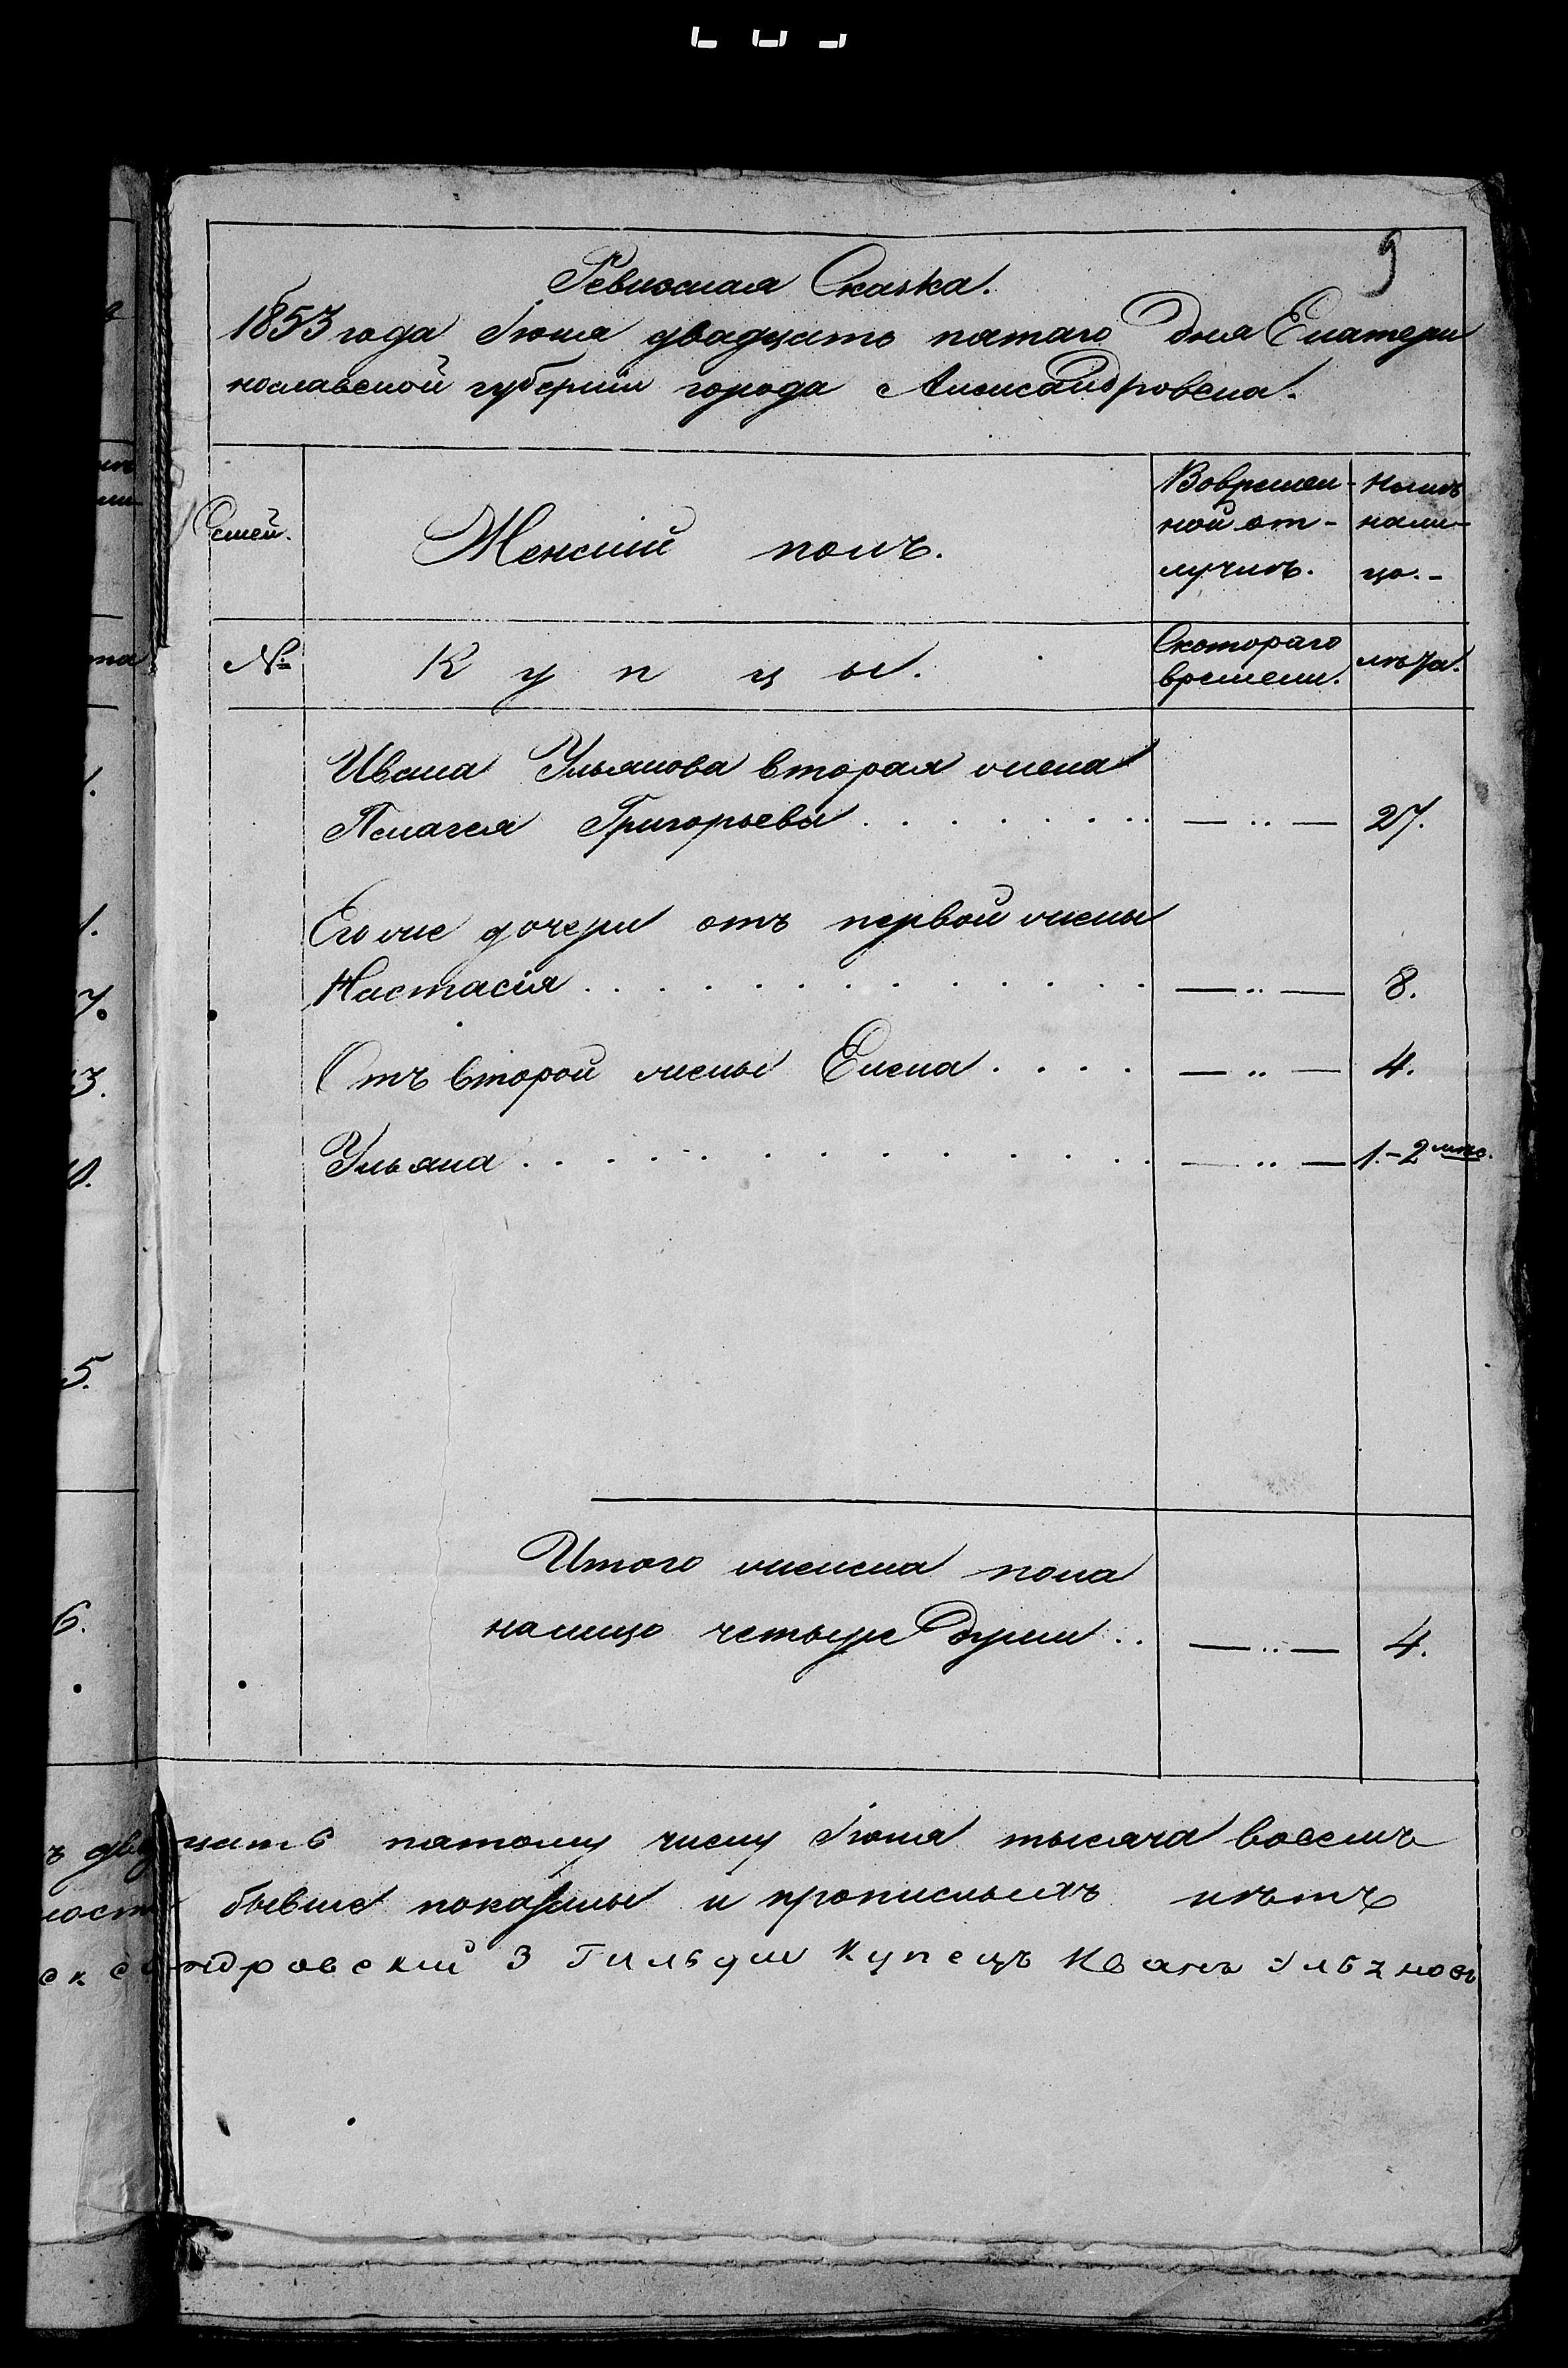 9
Ревизская Сказка.
1853 года Июня двадцать пятаго дня Екатери
нославской губерніи города Александровска.
Семей.
Женскій полъ.
Вовремен-
ной от-
лучкѣ.
Нынѣ
нали-
цо.-
№
Купцы.
Скотораго
времени.
лѣта.
Ивана Ульянова вторая жена
Пелагея Григорьева . . . . . . . . — .. — 27.
Его же дочери отъ первой жены
Настасія . . . . . . . . . . . . . . — .. — 8.
Отъ второй жены Елена . . . . — .. — 4.
Ульяна . . . . . . . . . . . . . . . — .. — 1.-2 мѣс.
Итого женска пола
налицо четыре души .. — .. — 4.
ъ двадцать пятому числу Июня тысяча восемь
бывше показаны и прописныхъ нѣтъ
ександровскій 3 Гильдіи Купецъ Иванъ Ульяновъ